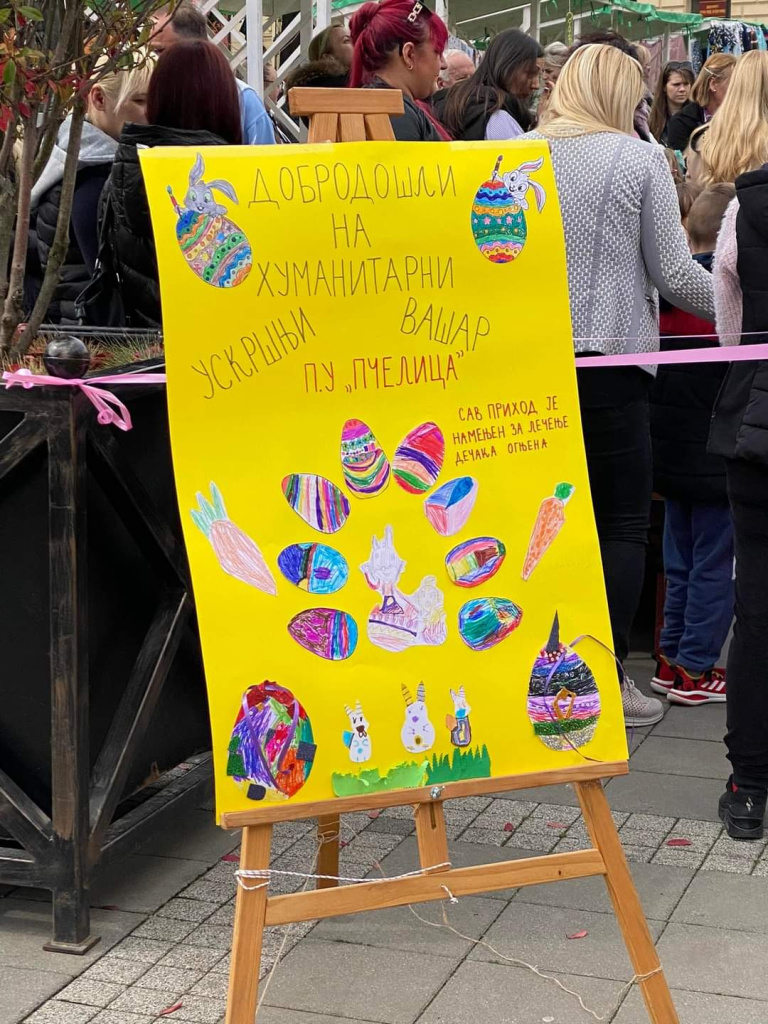 ДОБРОДОШЛИ
НА
ХУМАНИТАРНИ
УСКРШЊИ ВАШАР
П.У „ПЧЕЛИЦА”
САВ ПРИХОД ЈЕ
НАМЕЊЕН ЗА ЛЕЧЕЊЕ
ДЕЧАКА ОГЊЕНА